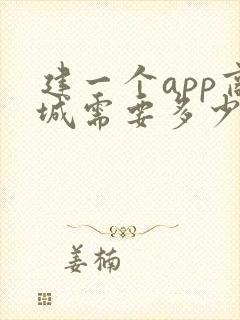 建一个app商
城需要多少
姜楠